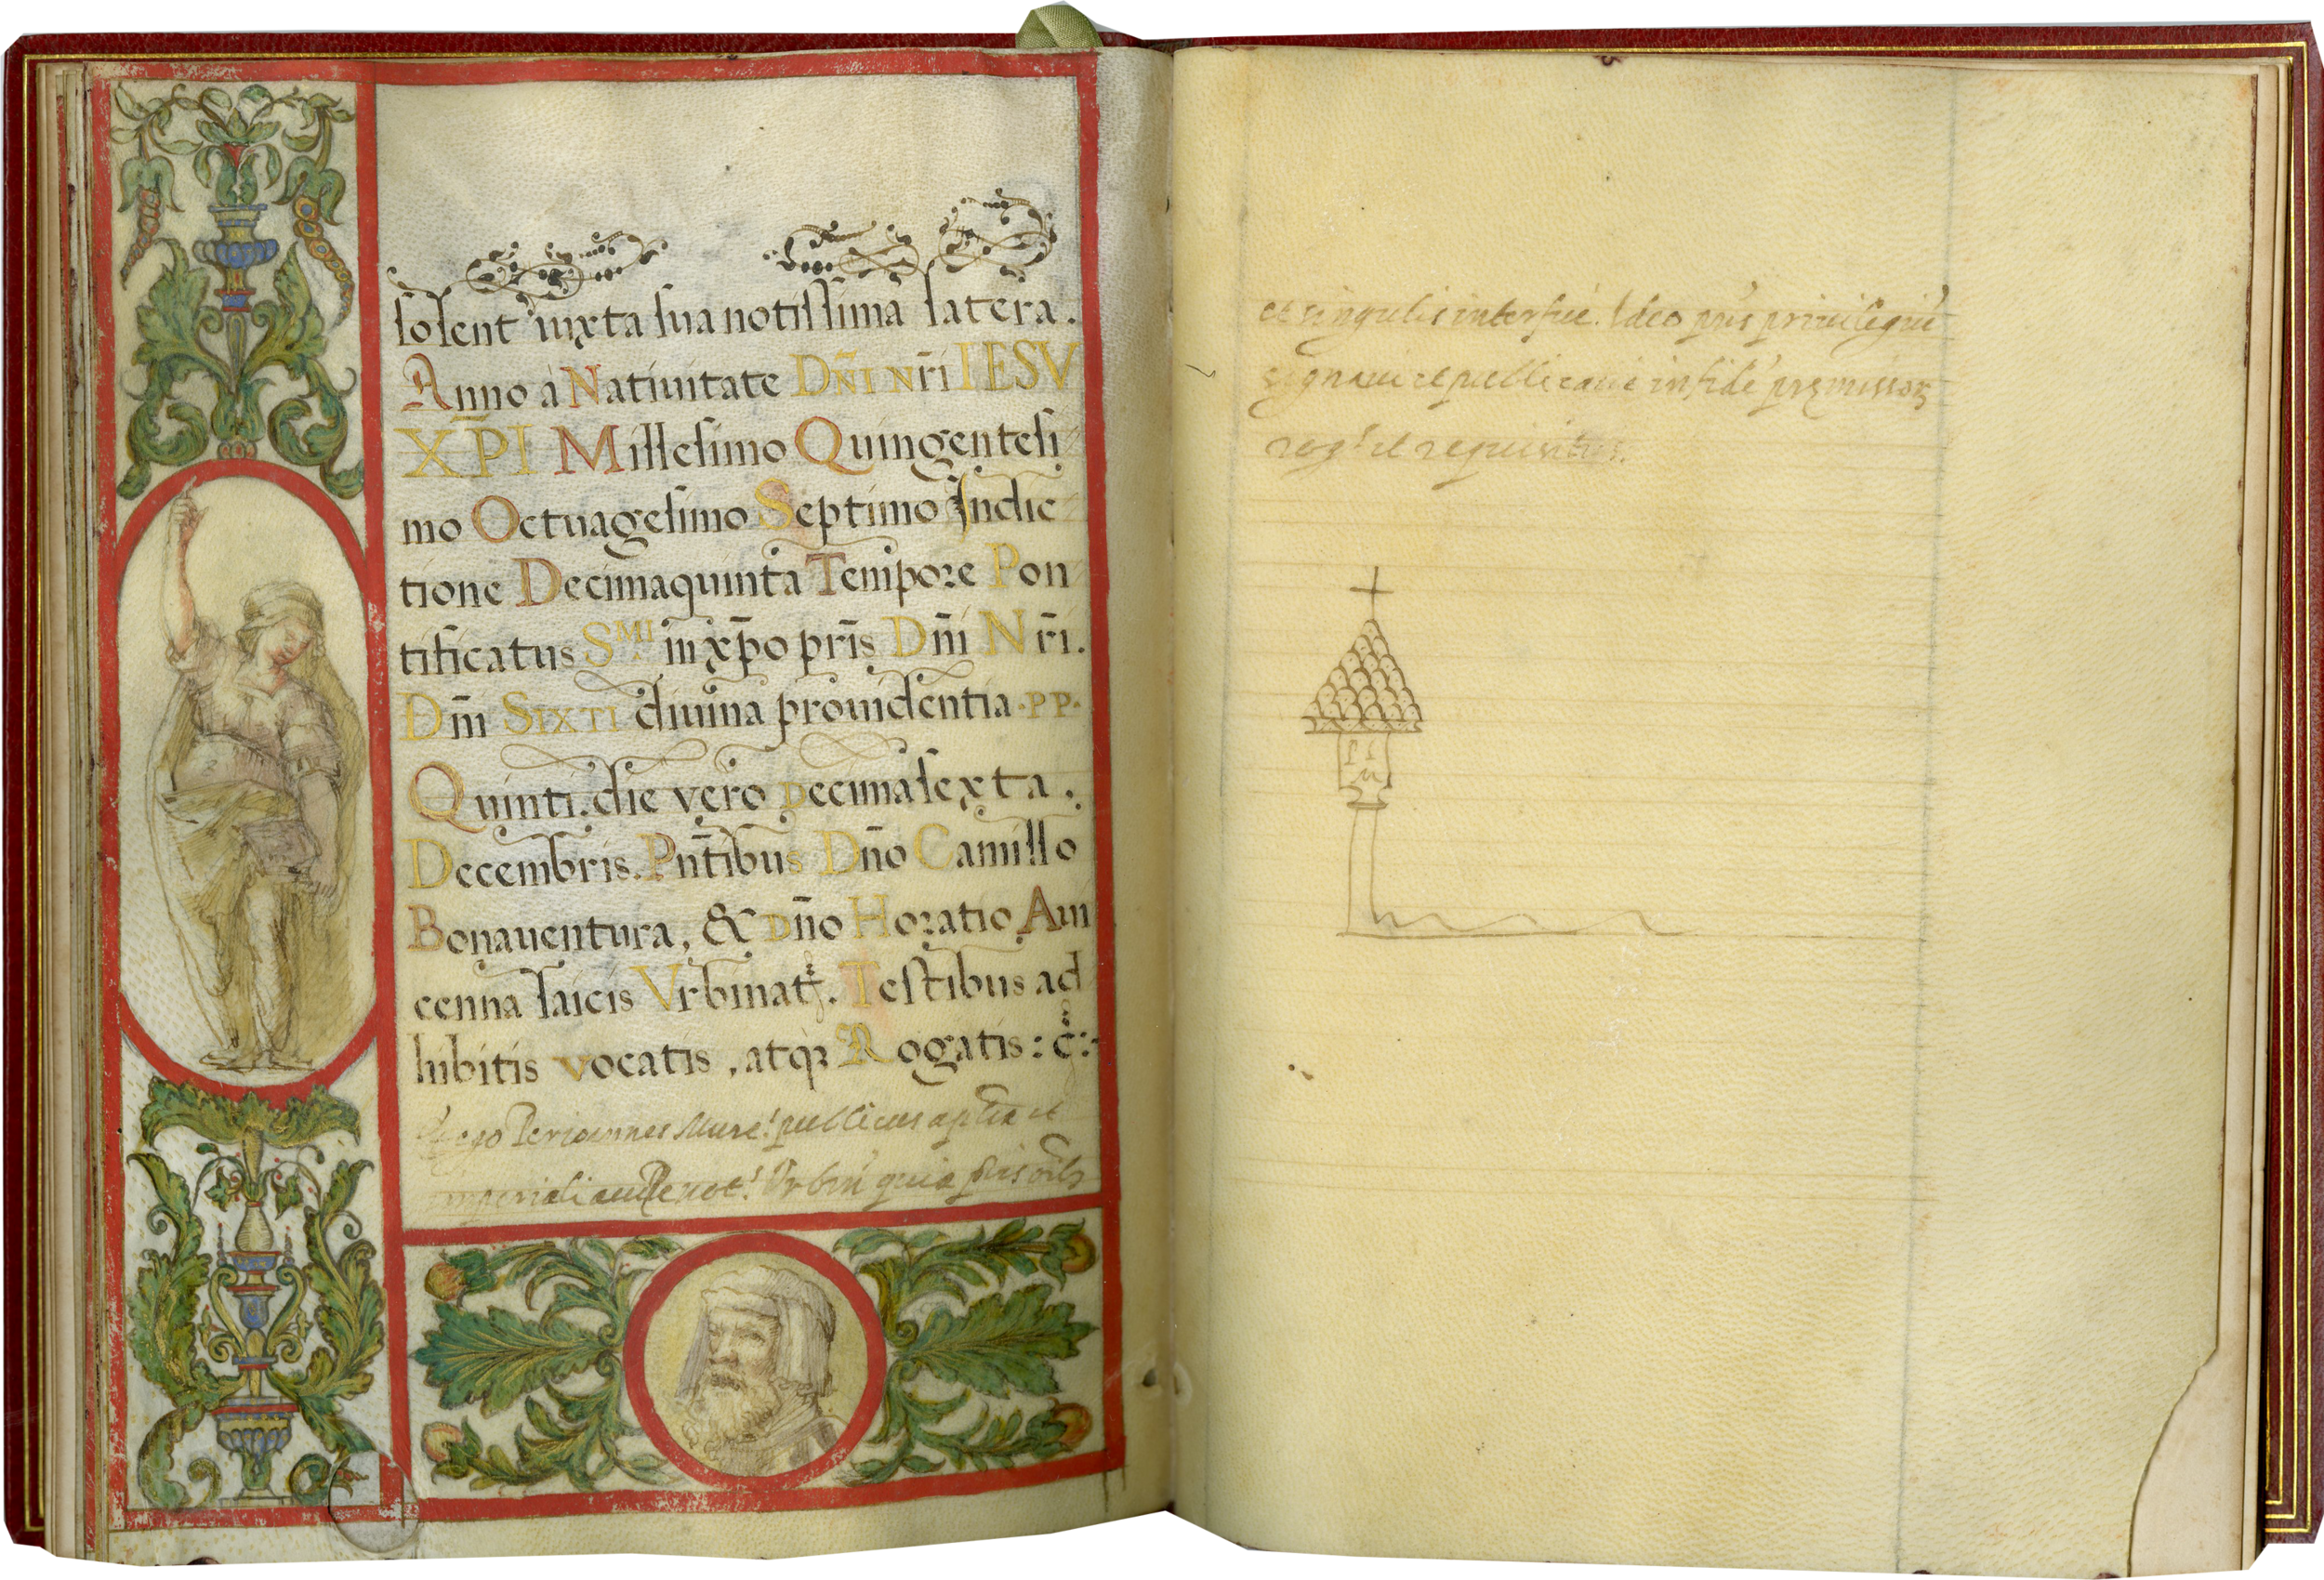 solent iuxta sua notissima latera.
Anno à Natiuitate DÑI Nr̃i IESV
XP̄I Millesimo Quingentesi
mo Octuagesimo Septimo Indic
tione Decimaquinta Tempore Pon
tificatus S.MI in xp̄o pr̄is Dñi Nr̄i.
Dñi SIXTI diuina prouidentia ·PP·
Quinti. die vero Decimasexta.
Decembris. Pñtibus Dño Camillo
Bonauentura, & Dño Horatio Aui
cenna laicis Vrbinat. Testibus ad
hibitis vocatis, atq Rogatis: č:
ego publicus aplica et
imperiali not. Vrbin quia
et singulis interfui. Ideo pñs priuilegiũ
signaui et publicaui in fidẽ premissor
rog. et requisitus.